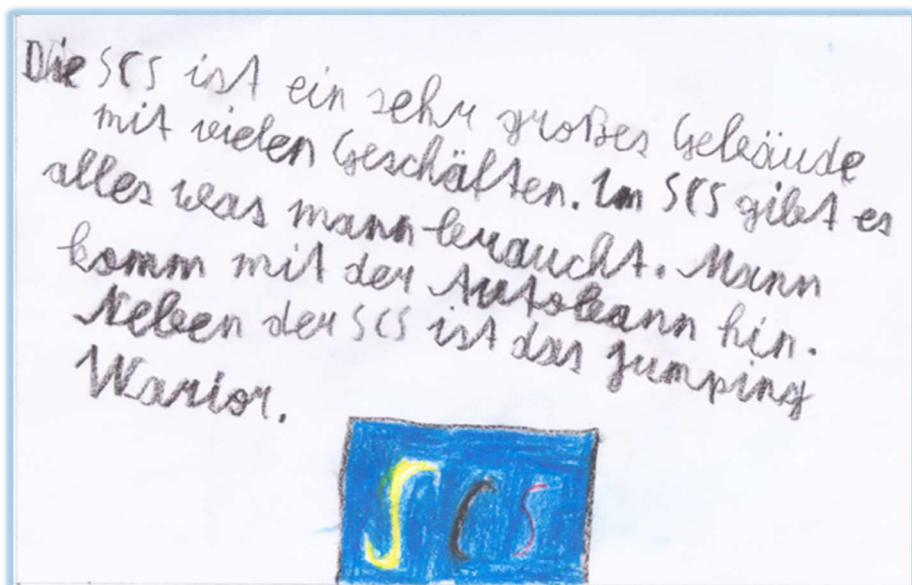 Die SCS ist ein sehr großes Gebäude
mit vielen Geschäften. Im SCS gibt es
alles was mann braucht. Mann
komm mit der Autobann hin.
Neben der SCS ist das Jumping
Warior.
SCS